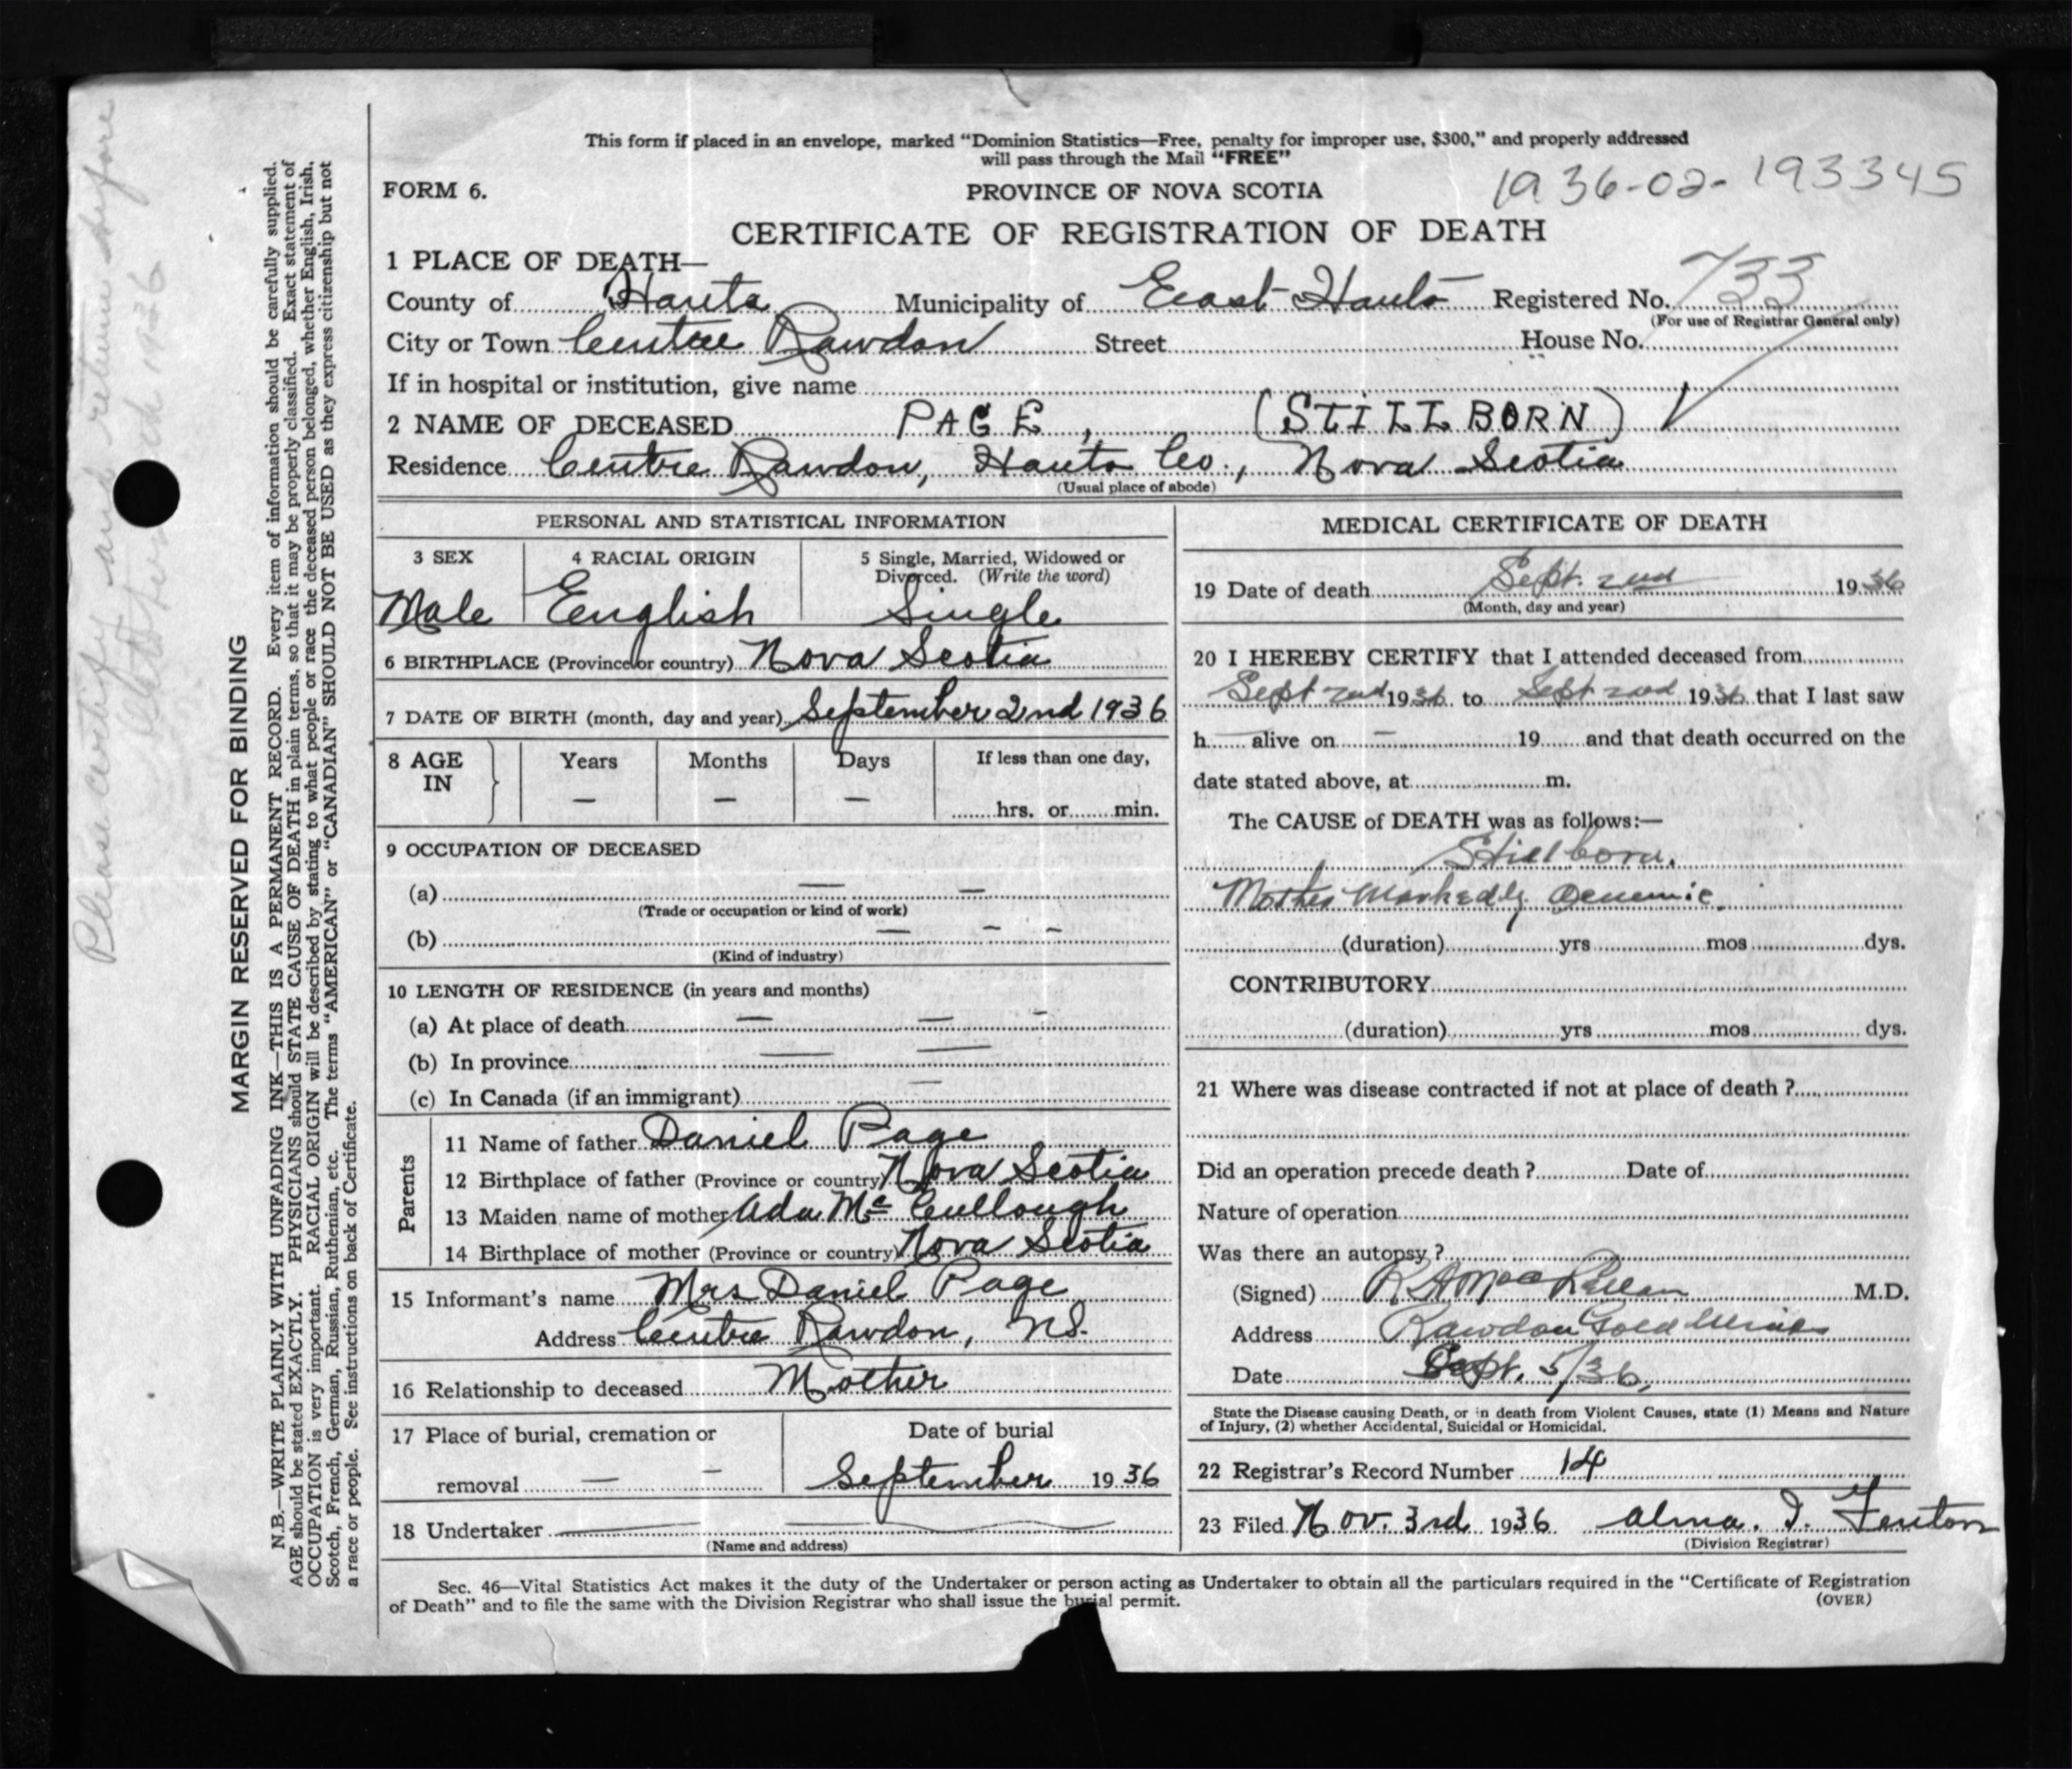 This form if placed in an envelope, marked “Dominion Statistics—Free, penalty for improper use, $300,” and properly addressed
will pass through the Mail “FREE”
FORM 6.
PROVINCE OF NOVA SCOTIA
1936-02-193345
CERTIFICATE OF REGISTRATION OF DEATH
1 PLACE OF DEATH—
County of Hants Municipality of East Hants Registered No. 733
(For use of Registrar General only)
City or Town Centre Rawdon Street House No.
If in hospital or institution, give name
2 NAME OF DECEASED PAGE, (STILLBORN)
Residence Centre Rawdon, Hants Co., Nova Scotia
(Usual place of abode)
PERSONAL AND STATISTICAL INFORMATION
3 SEX 4 RACIAL ORIGIN 5 Single, Married, Widowed or
Divorced. (Write the word)
Male English Single
6 BIRTHPLACE (Province or country) Nova Scotia
7 DATE OF BIRTH (month, day and year) September 2nd 1936
8 AGE Years Months Days If less than one day,
IN — — — hrs. or min.
9 OCCUPATION OF DECEASED
(a) — —
(Trade or occupation or kind of work)
(b) — - -
(Kind of industry)
10 LENGTH OF RESIDENCE (in years and months)
(a) At place of death — — -
(b) In province — —
(c) In Canada (if an immigrant) —
Parents
11 Name of father Daniel Page
12 Birthplace of father (Province or country) Nova Scotia
13 Maiden name of mother Ada McCullough
14 Birthplace of mother (Province or country) Nova Scotia
15 Informant's name Mrs Daniel Page
Address Centre Rawdon, N.S.
16 Relationship to deceased Mother
17 Place of burial, cremation or Date of burial
removal — — September 1936
18 Undertaker
(Name and address)
MEDICAL CERTIFICATE OF DEATH
19 Date of death Sept. 2nd 1936
(Month, day and year)
20 I HEREBY CERTIFY that I attended deceased from
Sept 2nd 1936 to Sept 2nd 1936 that I last saw
h alive on — 19 and that death occurred on the
date stated above, at m.
The CAUSE of DEATH was as follows:—
Stillborn.
Mother Markedly Anemic.
(duration) yrs mos dys.
CONTRIBUTORY
(duration) yrs mos dys.
21 Where was disease contracted if not at place of death ?
Did an operation precede death ? Date of
Nature of operation
Was there an autopsy ?
(Signed) R A MacLellan M.D.
Address Rawdon Gold Mines
Date Sept. 5/36.
State the Disease causing Death, or in death from Violent Causes, state (1) Means and Nature
of Injury, (2) whether Accidental, Suicidal or Homicidal.
22 Registrar's Record Number 14
23 Filed Nov. 3rd 1936 Alma. I. Fenton
(Division Registrar)
Sec. 46—Vital Statistics Act makes it the duty of the Undertaker or person acting as Undertaker to obtain all the particulars required in the “Certificate of Registration
of Death” and to file the same with the Division Registrar who shall issue the burial permit.
(OVER)
MARGIN RESERVED FOR BINDING
N.B.—WRITE PLAINLY WITH UNFADING INK—THIS IS A PERMANENT RECORD. Every item of information should be carefully supplied.
AGE should be stated EXACTLY. PHYSICIANS should STATE CAUSE OF DEATH in plain terms, so that it may be properly classified. Exact statement of
OCCUPATION is very important. RACIAL ORIGIN will be described by stating to what people or race the deceased person belonged, whether English, Irish,
Scotch, French, German, Russian, Ruthenian, etc. The terms “AMERICAN” or “CANADIAN” SHOULD NOT BE USED as they express citizenship but not
a race or people. See instructions on back of Certificate.
Please certify and return before
1936